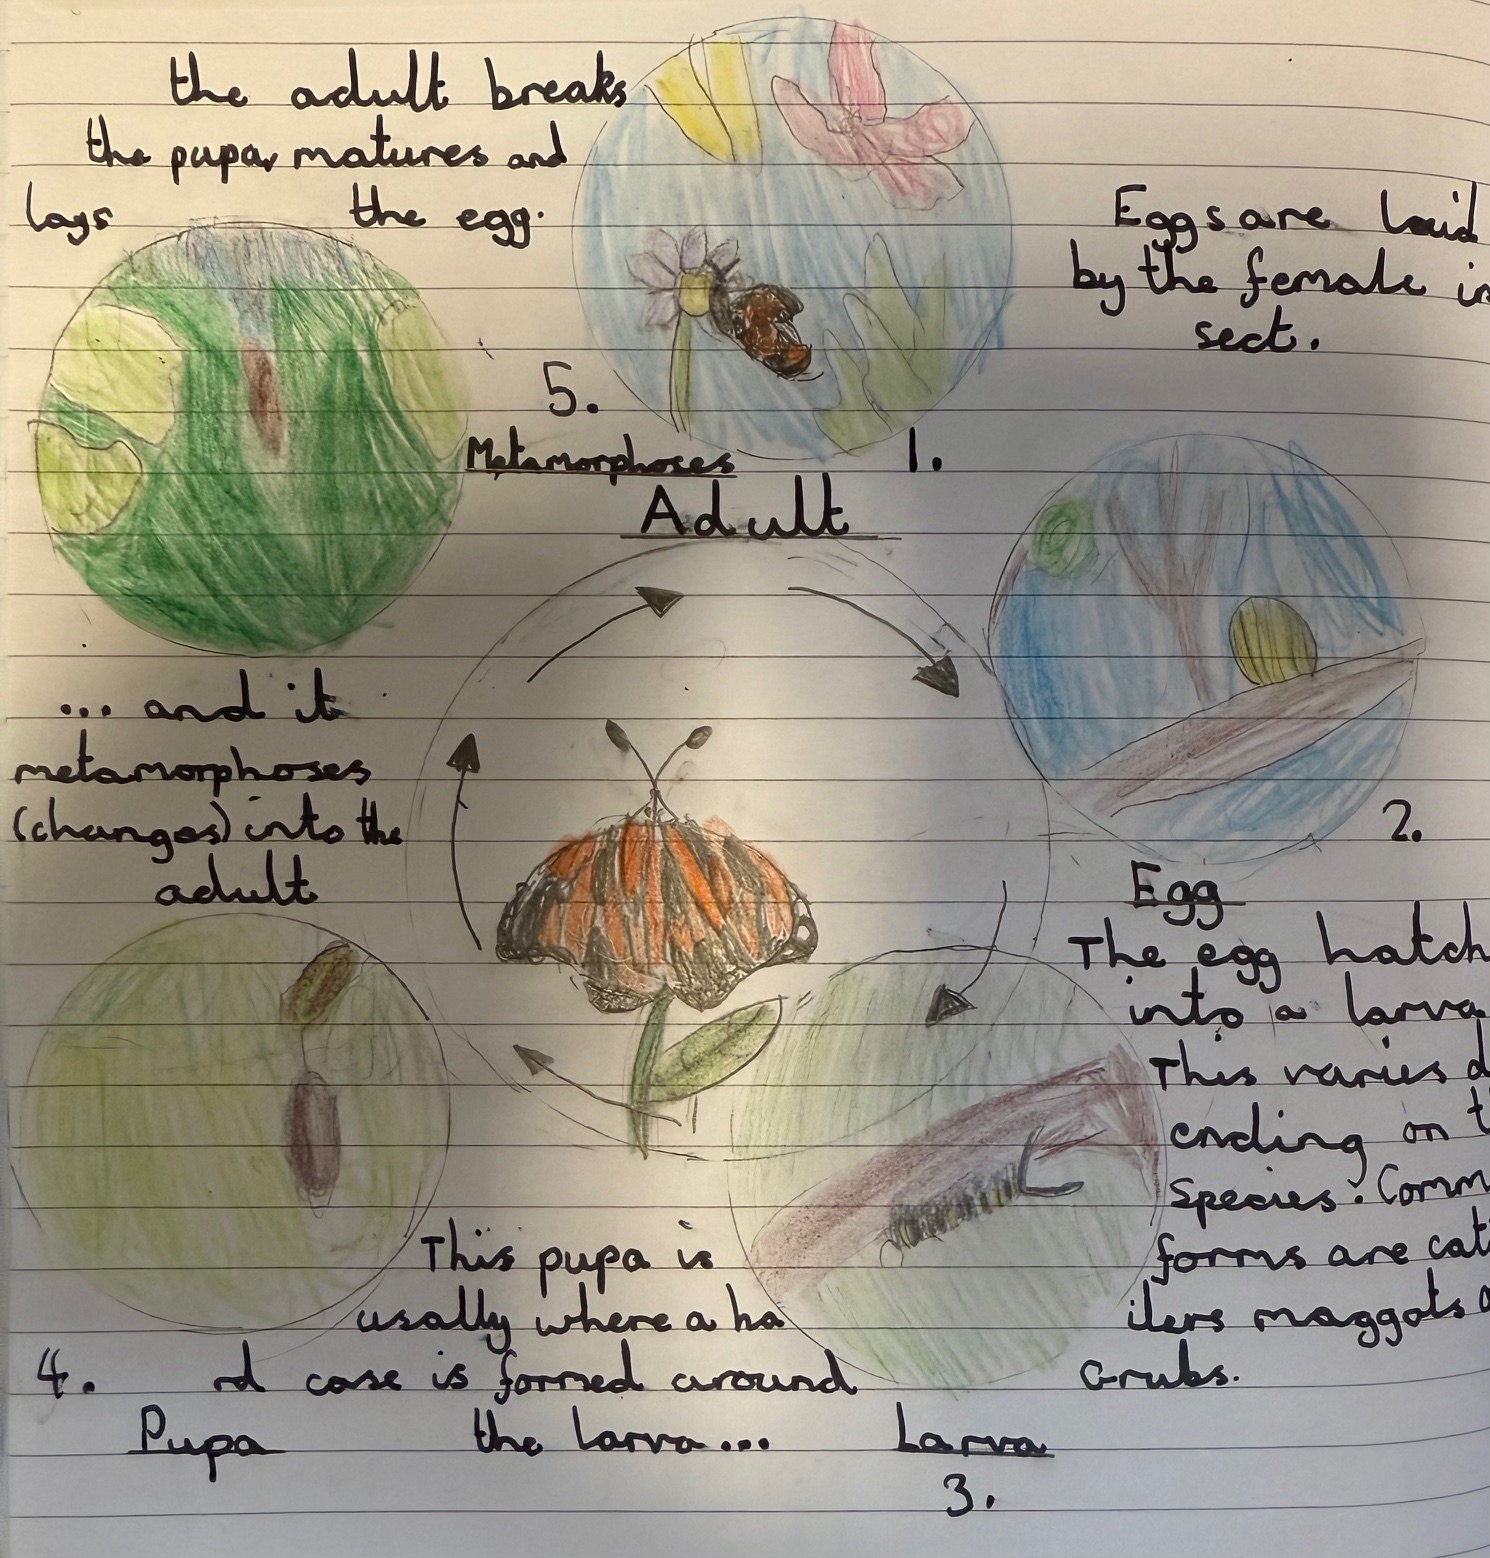 the adult breaks
the pupa, matures and
lays the egg.
Eggs are laid
by the female in
sect.
5.
Metamorphoses
1.
Adult
... and it
metamorphoses
(changes) into the
adult
2.
Egg
The egg hatch
into a larva
This varies d
ending on t
Species. Comm
forms are cat
ilers maggots
Grubs.
This pupa is
usally where a ha
rd case is formed around
the larva...
4.
Pupa
Larva
3.